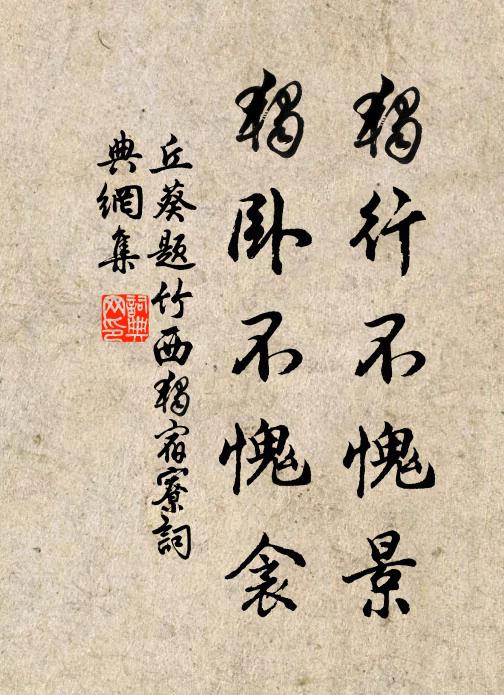 獨行不愧景
獨臥不愧衾
丘葵題竹西獨宿寮詞
典網集
詞典
网印